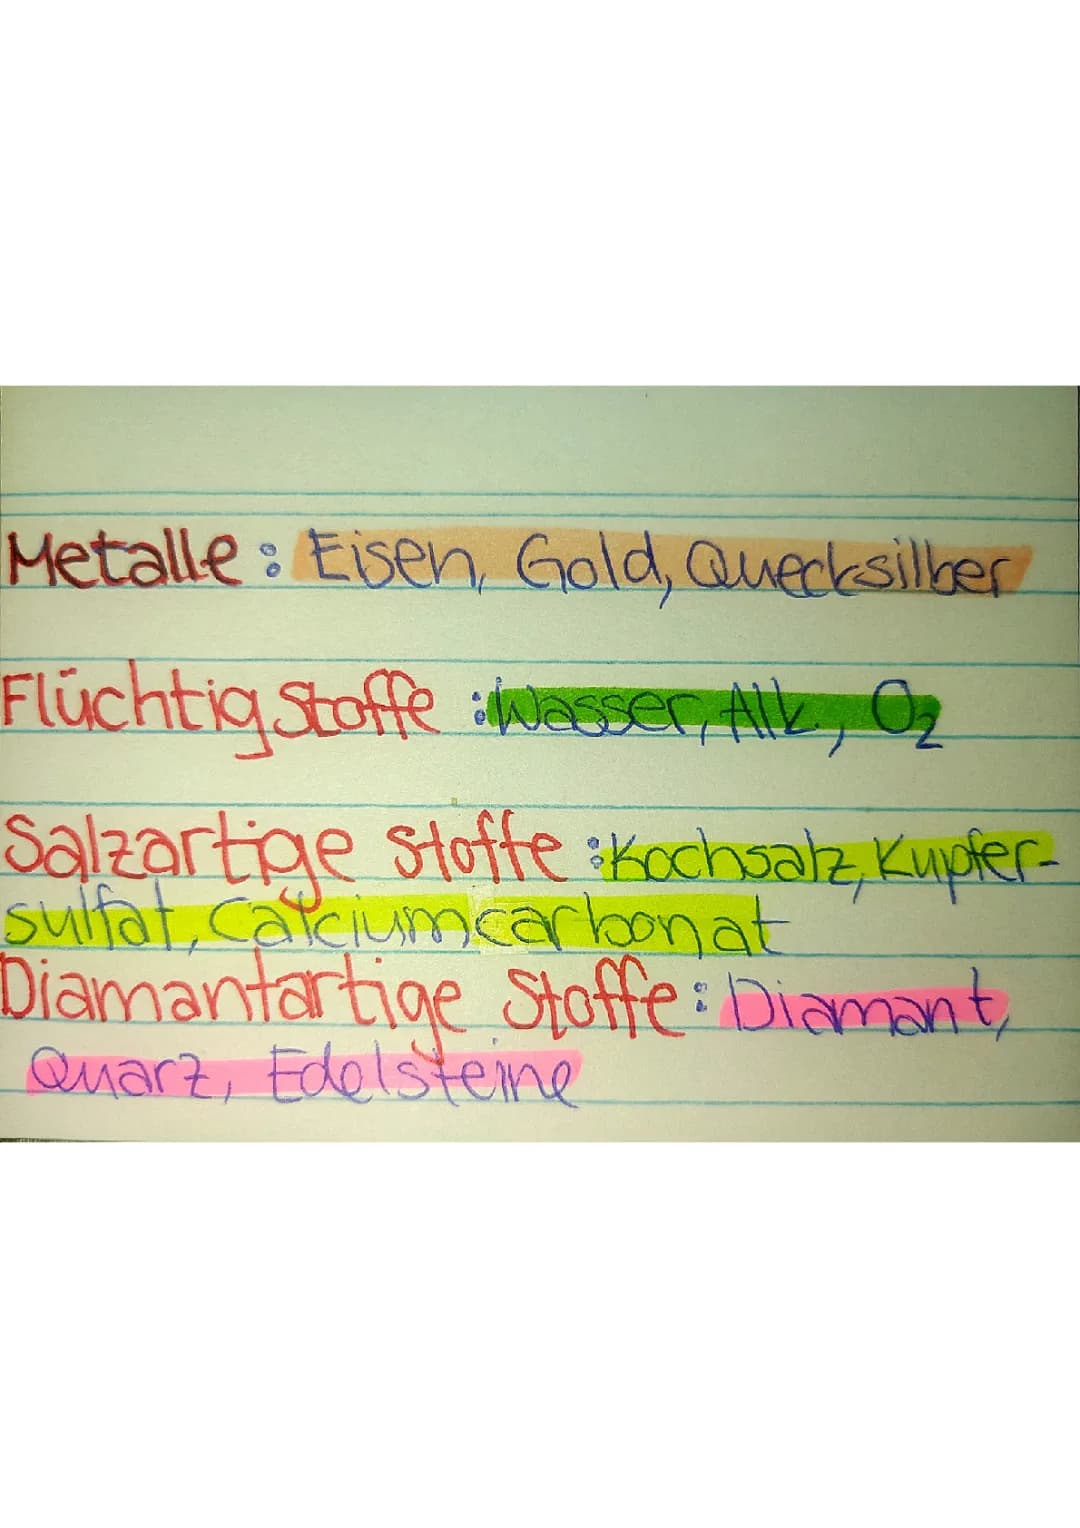 Metalle: Eisen, Gold, Quecksilber
Flüchtig Stoffe: Wasser, Alk., O₂
Salzartige Stoffe: Kochsalz, Kupfer-
sulfat, Calciumcarbonat
Diamantartige Stoffe: Diamant,
Quarz, Edelsteine